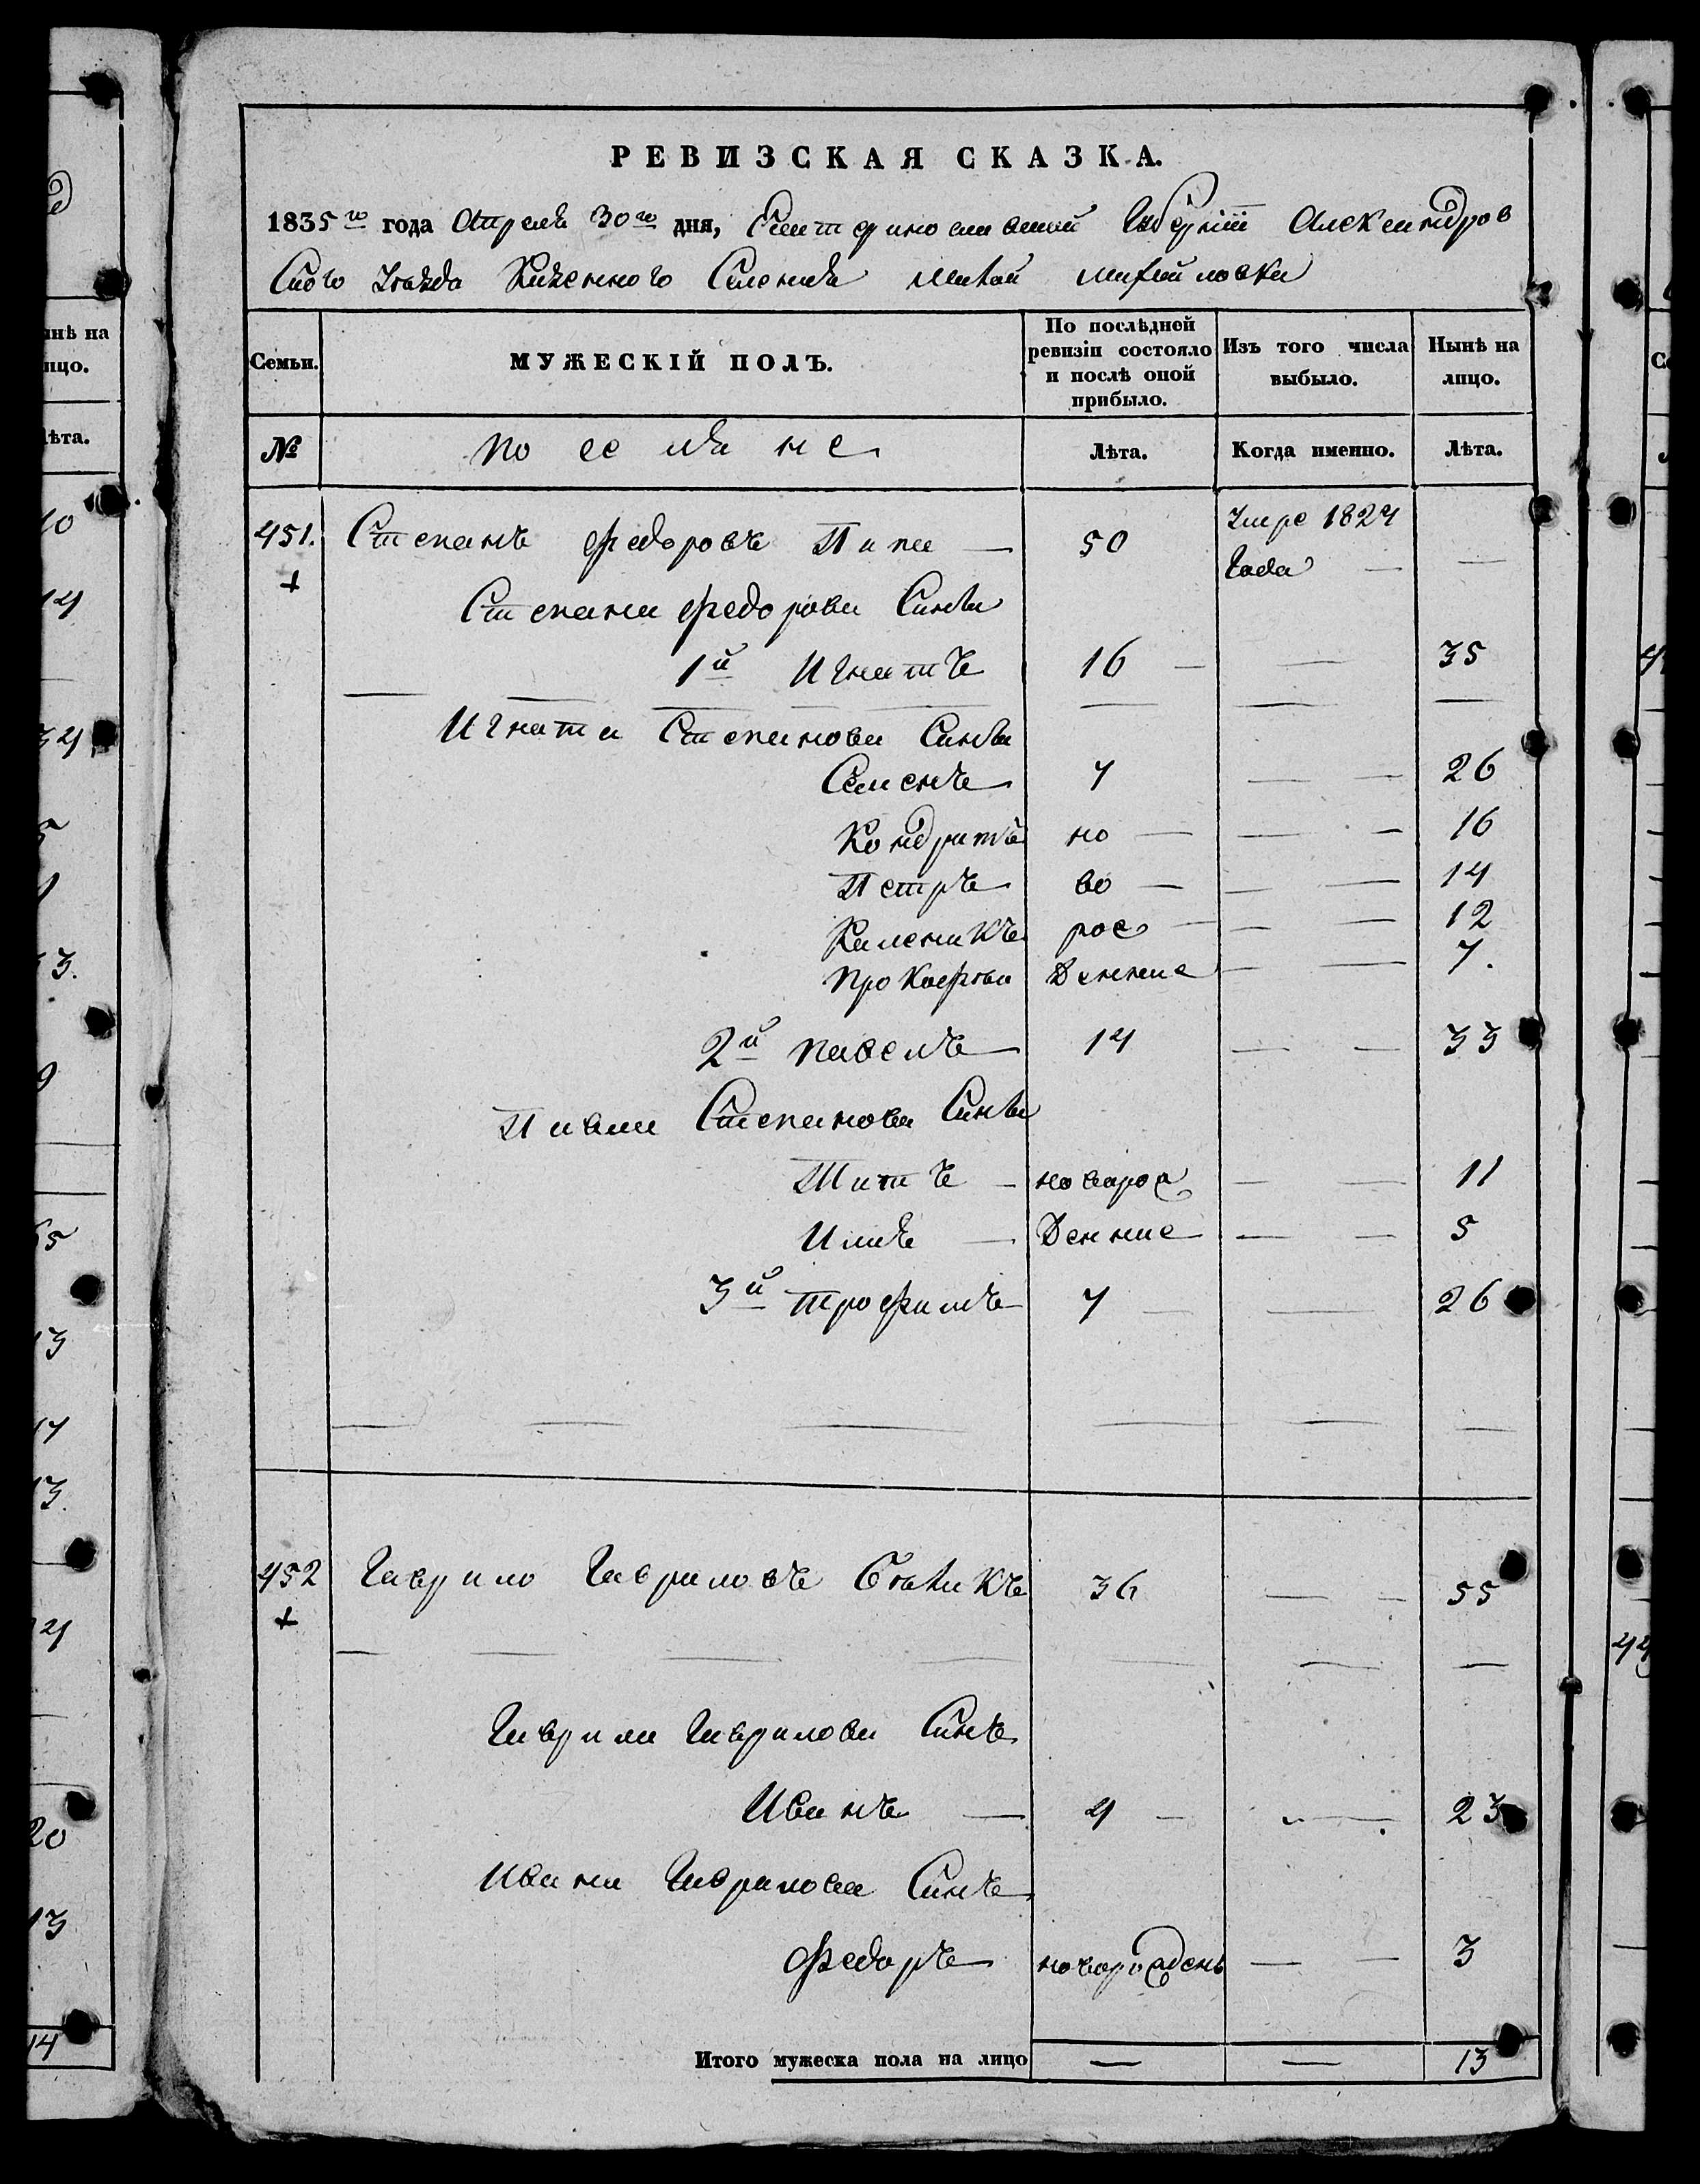 РЕВИЗСКАЯ СКАЗКА.
1835го года Апреля 30го дня, Екатеринославской Губернiи Александров
ского уезда Казенного Селения Малой Михайловки
Семьи.
МУЖЕСКIЙ ПОЛЪ.
По послѣдней ревизiи состояло и послѣ оной прибыло.
Изъ того числа выбыло.
Нынѣ на лицо.
№ поселяне Лѣта. Когда именно. Лѣта.
451. Степанъ Федоровъ Папа — 50 умре 1827 года — —
+
Степана Федорова Сыны
1й Игнатъ 16 — — 35
Игната Степанова Сыны
Семенъ 7 — — 26
Кондратъ но — — — 16
Петръ во — — — 14
Каленикъ рож — — — 12
Прокофiй денные — — 7.
2й Павелъ 14 — — 33
Павла Степанова Сыны
Титъ — новорож — — 11
Илья — денные — — 5
3й Трофимъ 7 — — 26
452 Гаврило Гавриловъ 36 — — 55
+
Гаврила Гаврилова Сынъ
Иванъ — 4 — — 23
Ивана Гаврилова Сынъ
Федоръ новорожденъ — — 3
Итого мужеска пола на лицо — — 13
нѣ на
ицо.
ѣта.
10
14
34
3.
9
65
13
17
13.
20
13
14